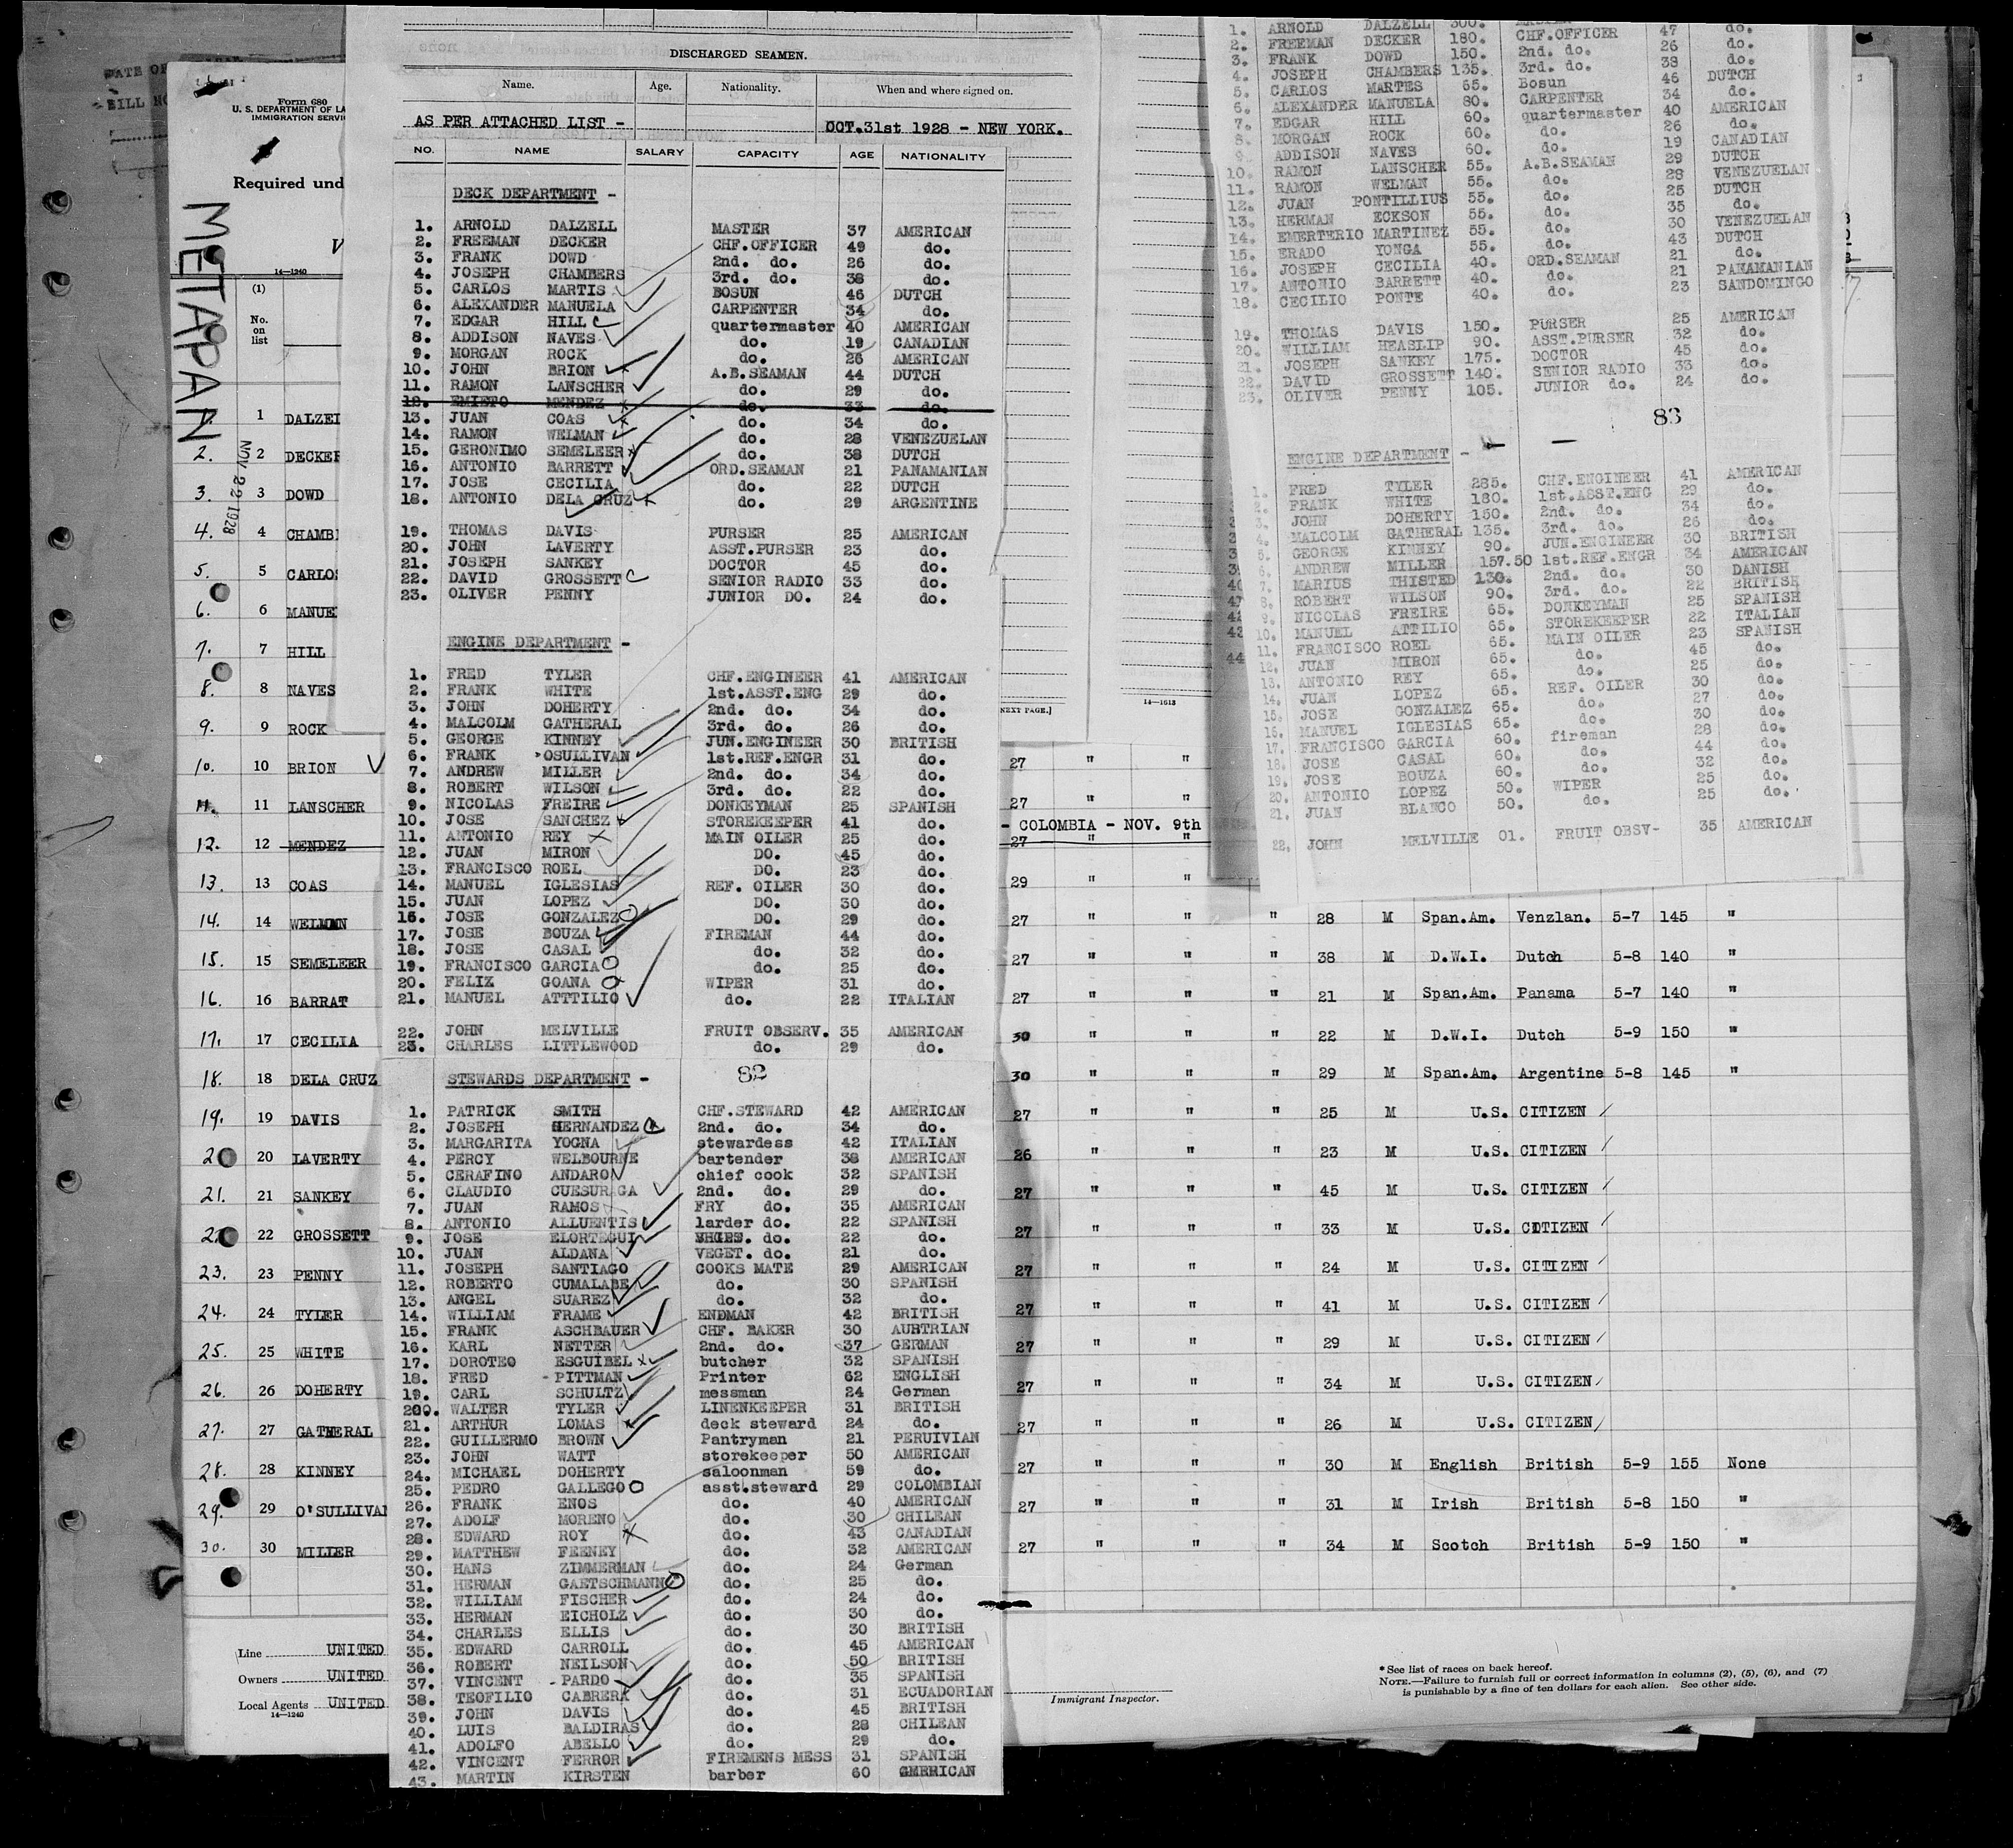 DATE OF
BILL NO
Form 680
U. S. DEPARTMENT OF LA
IMMIGRATION SERVI
Required und
METAPAN
NOV 22 1928
14—1240
(1)
No.
on
list
1 DALZEL
2. 2 DECKER
3. 3 DOWD
4. 4 CHAMB
5. 5 CARLOS
6. 6 MANUE
7. 7 HILL
8. 8 NAVES
9. 9 ROCK
10. 10 BRION
11. 11 LANSCHER
12. 12 MENDEZ
13. 13 COAS
14. 14 WELMAN
15. 15 SEMELEER
16. 16 BARRAT
17. 17 CECILIA
18. 18 DELA CRUZ
19. 19 DAVIS
20 20 LAVERTY
21. 21 SANKEY
22 22 GROSSETT
23. 23 PENNY
24. 24 TYLER
25. 25 WHITE
26. 26 DOHERTY
27. 27 GATHERAL
28. 28 KINNEY
29. 29 O'SULLIVAN
30. 30 MILLER
Line UNITED
Owners UNITED
Local Agents UNITED
14—1240
DISCHARGED SEAMEN.
Name. Age. Nationality. When and where signed on.
AS PER ATTACHED LIST - OCT.31st 1928 - NEW YORK.
NO. NAME SALARY CAPACITY AGE NATIONALITY
DECK DEPARTMENT -
1. ARNOLD DALZELL MASTER 37 AMERICAN
2. FREEMAN DECKER CHF.OFFICER 49 do.
3. FRANK DOWD 2nd. do. 26 do.
4. JOSEPH CHAMBERS 3rd. do. 38 do.
5. CARLOS MARTIS BOSUN 46 DUTCH
6. ALEXANDER MANUELA CARPENTER 34 do.
7. EDGAR HILL quartermaster 40 AMERICAN
8. ADDISON NAVES do. 19 CANADIAN
9. MORGAN ROCK do. 26 AMERICAN
10. JOHN BRION A.B.SEAMAN 44 DUTCH
11. RAMON LANSCHER do. 29 do.
12. EMIETO MENDEZ do. 33 do.
13. JUAN COAS do. 34 do.
14. RAMON WELMAN do. 28 VENEZUELAN
15. GERONIMO SEMELEER do. 38 DUTCH
16. ANTONIO BARRETT ORD.SEAMAN 21 PANAMANIAN
17. JOSE CECILIA do. 22 DUTCH
18. ANTONIO DELA CRUZ do. 29 ARGENTINE
19. THOMAS DAVIS PURSER 25 AMERICAN
20. JOHN LAVERTY ASST.PURSER 23 do.
21. JOSEPH SANKEY DOCTOR 45 do.
22. DAVID GROSSETT SENIOR RADIO 33 do.
23. OLIVER PENNY JUNIOR DO. 24 do.
ENGINE DEPARTMENT -
1. FRED TYLER CHF.ENGINEER 41 AMERICAN
2. FRANK WHITE 1st.ASST.ENG 29 do.
3. JOHN DOHERTY 2nd. do. 34 do.
4. MALCOLM GATHERAL 3rd. do. 26 do.
5. GEORGE KINNEY JUN.ENGINEER 30 BRITISH
6. FRANK OSULLIVAN 1st.REF.ENGR 31 do.
7. ANDREW MILLER 2nd. do. 34 do.
8. ROBERT WILSON 3rd. do. 22 do.
9. NICOLAS FREIRE DONKEYMAN 25 SPANISH
10. JOSE SANCHEZ STOREKEEPER 41 do.
11. ANTONIO REY MAIN OILER 25 do.
12. JUAN MIRON DO. 45 do.
13. FRANCISCO ROEL DO. 23 do.
14. MANUEL IGLESIAS REF. OILER 30 do.
15. JUAN LOPEZ DO. 30 do.
16. JOSE GONZALEZ DO. 29 do.
17. JOSE BOUZA FIREMAN 44 do.
18. JOSE CASAL do. 32 do.
19. FRANCISCO GARCIA do. 25 do.
20. FELIZ GOANA WIPER 31 do.
21. MANUEL ATTTILIO do. 22 ITALIAN
22. JOHN MELVILLE FRUIT OBSERV. 35 AMERICAN
23. CHARLES LITTLEWOOD do. 29 do.
STEWARDS DEPARTMENT - 82
1. PATRICK SMITH CHF.STEWARD 42 AMERICAN
2. JOSEPH HERNANDEZ 2nd. do. 34 do.
3. MARGARITA YOGNA stewardess 42 ITALIAN
4. PERCY WELBOURNE bartender 38 AMERICAN
5. CERAFINO ANDARO chief cook 32 SPANISH
6. CLAUDIO CUESURAGA 2nd. do. 29 do.
7. JUAN RAMOS FRY do. 35 AMERICAN
8. ANTONIO ALLUENTIS larder do. 22 SPANISH
9. JOSE ELORTEGUI do. 22 do.
10. JUAN ALDANA VEGET. do. 21 do.
11. JOSEPH SANTIAGO COOKS MATE 29 AMERICAN
12. ROBERTO CUMALABE do. 30 SPANISH
13. ANGEL SUAREZ do. 32 do.
14. WILLIAM FRAME ENDMAN 42 BRITISH
15. FRANK ASCHBAUER CHF. BAKER 30 AUBTRIAN
16. KARL NETTER 2nd. do. 37 GERMAN
17. DOROTEO ESGUIBEL butcher 32 SPANISH
18. FRED PITTMAN Printer 62 ENGLISH
19. CARL SCHULTZ messman 24 German
200. WALTER TYLER LINENKEEPER 31 BRITISH
21. ARTHUR LOMAS deck steward 24 do.
22. GUILLERMO BROWN Pantryman 21 PERUIVIAN
23. JOHN WATT storekeeper 50 AMERICAN
24. MICHAEL DOHERTY saloonman 59 do.
25. PEDRO GALLEGO asst.steward 29 COLOMBIAN
26. FRANK ENOS do. 40 AMERICAN
27. ADOLF MORENO do. 30 CHILEAN
28. EDWARD ROY do. 43 CANADIAN
29. MATTHEW FEENEY do. 32 AMERICAN
30. HANS ZIMMERMAN do. 24 German
31. HERMAN GAETSCHMANN do. 25 do.
32. WILLIAM FISCHER do. 24 do.
33. HERMAN EICHOLZ do. 30 do.
34. CHARLES ELLIS do. 30 BRITISH
35. EDWARD CARROLL do. 45 AMERICAN
36. ROBERT NEILSON do. 50 BRITISH
37. VINCENT PARDO do. 35 SPANISH
38. TEOFILIO CABRERA do. 31 ECUADORIAN
39. JOHN DAVIS do. 45 BRITISH
40. LUIS BALDIRAS do. 28 CHILEAN
41. ADOLFO ABELLO do. 29 do.
42. VINCENT FERROR FIREMENS MESS 31 SPANISH
43. MARTIN KIRSTEN barber 60 GMERICAN
NEXT PAGE.]
14—1613
1. ARNOLD DALZELL 300.
2. FREEMAN DECKER 180. CHF.OFFICER 47 do.
3. FRANK DOWD 150. 2nd. do. 26 do.
4. JOSEPH CHAMBERS 135. 3rd. do. 38 do.
5. CARLOS MARTES 65. Bosun 46 DUTCH
6. ALEXANDER MANUELA 80. CARPENTER 34 do.
7. EDGAR HILL 60. quartermaster 40 AMERICAN
8. MORGAN ROCK 60. do. 26 do.
9. ADDISON NAVES 60. do. 19 CANADIAN
10. RAMON LANSCHER 55. A.B.SEAMAN 29 DUTCH
11. RAMON WELMAN 55. do. 28 VENEZUELAN
12. JUAN PONTILLIUS 55. do. 25 DUTCH
13. HERMAN ECKSON 55. do. 35 do.
14. EMERTERIO MARTINEZ 55. do. 30 VENEZUELAN
15. ERADO YONGA 55. do. 43 DUTCH
16. JOSEPH CECILIA 40. ORD.SEAMAN 21 do.
17. ANTONIO BARRETT 40. do. 21 PANAMANIAN
18. CECILIO PONTE 40. do. 23 SANDOMINGO
19. THOMAS DAVIS 150. PURSER 25 AMERICAN
20. WILLIAM HEASLIP 90. ASST.PURSER 32 do.
21. JOSEPH SANKEY 175. DOCTOR 45 do.
22. DAVID GROSSETT 140. SENIOR RADIO 33 do.
23. OLIVER PENNY 105. JUNIOR do. 24 do.
83
ENGINE DEPARTMENT -
1. FRED TYLER 285. CHF.ENGINEER 41 AMERICAN
2. FRANK WHITE 180. 1st.ASST.ENG 29 do.
3. JOHN DOHERTY 150. 2nd. do. 34 do.
4. MALCOLM GATHERAL 135. 3rd. do. 26 do.
5. GEORGE KINNEY 90. JUN.ENGINEER 30 BRITISH
6. ANDREW MILLER 157.50 1st.REF.ENGR 34 AMERICAN
7. MARIUS THISTED 130. 2nd. do. 30 DANISH
8. ROBERT WILSON 90. 3rd. do. 22 BRITISH
9. NICOLAS FREIRE 65. DONKEYMAN 25 SPANISH
10. MANUEL ATTILIO 65. STOREKEEPER 22 ITALIAN
11. FRANCISCO ROEL 65. MAIN OILER 23 SPANISH
12. JUAN MIRON 65. do. 45 do.
13. ANTONIO REY 65. do. 25 do.
14. JUAN LOPEZ 65. REF. OILER 30 do.
15. JOSE GONZALEZ 65. do. 27 do.
16. MANUEL IGLESIAS 65. do. 30 do.
17. FRANCISCO GARCIA 60. fireman 28 do.
18. JOSE CASAL 60. do. 44 do.
19. JOSE BOUZA 60. do. 32 do.
20. ANTONIO LOPEZ 50. WIPER 25 do.
21. JUAN BLANCO 50. do. 25 do.
22. JOHN MELVILLE 01. FRUIT OBSV- 35 AMERICAN
27 " "
27 " "
- COLOMBIA - NOV. 9th
27 " "
29 " "
27 " " " 28 M Span.Am. Venzlan. 5-7 145 "
27 " " " 38 M D.W.I. Dutch 5-8 140 "
27 " " " 21 M Span.Am. Panama 5-7 140 "
30 " " " 22 M D.W.I. Dutch 5-9 150 "
30 " " " 29 M Span.Am. Argentine 5-8 145 "
27 " " " 25 M U.S. CITIZEN
26 " " " 23 M U.S. CITIZEN
27 " " " 45 M U.S. CITIZEN
27 " " " 33 M U.S. CITIZEN
27 " " " 24 M U.S. CITIZEN
27 " " " 41 M U.S. CITIZEN
27 " " " 29 M U.S. CITIZEN
27 " " " 34 M U.S. CITIZEN
27 " " " 26 M U.S. CITIZEN
27 " " " 30 M English British 5-9 155 None
27 " " " 31 M Irish British 5-8 150 "
27 " " " 34 M Scotch British 5-9 150 "
Immigrant Inspector.
* See list of races on back hereof.
NOTE.—Failure to furnish full or correct information in columns (2), (5), (6), and (7)
is punishable by a fine of ten dollars for each alien. See other side.